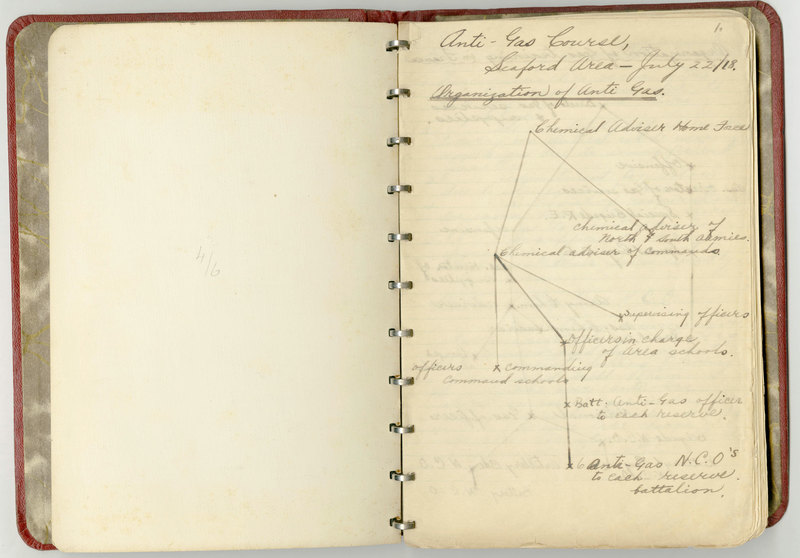 4/6
1.
Anti-Gas Course,
Seaford Area - July 22/18.
Organization of Anti Gas.
Chemical Adviser Home Forces
Chemical adviser of
North & South Armies.
Chemical adviser of Commands.
x Supervising officers
x Officers in charge
of Area schools.
officers x commanding
Command schools
x Batt. Anti-Gas officer
to each reserve.
x 6 Anti-Gas N.C.O's
to each reserve.
battalion.